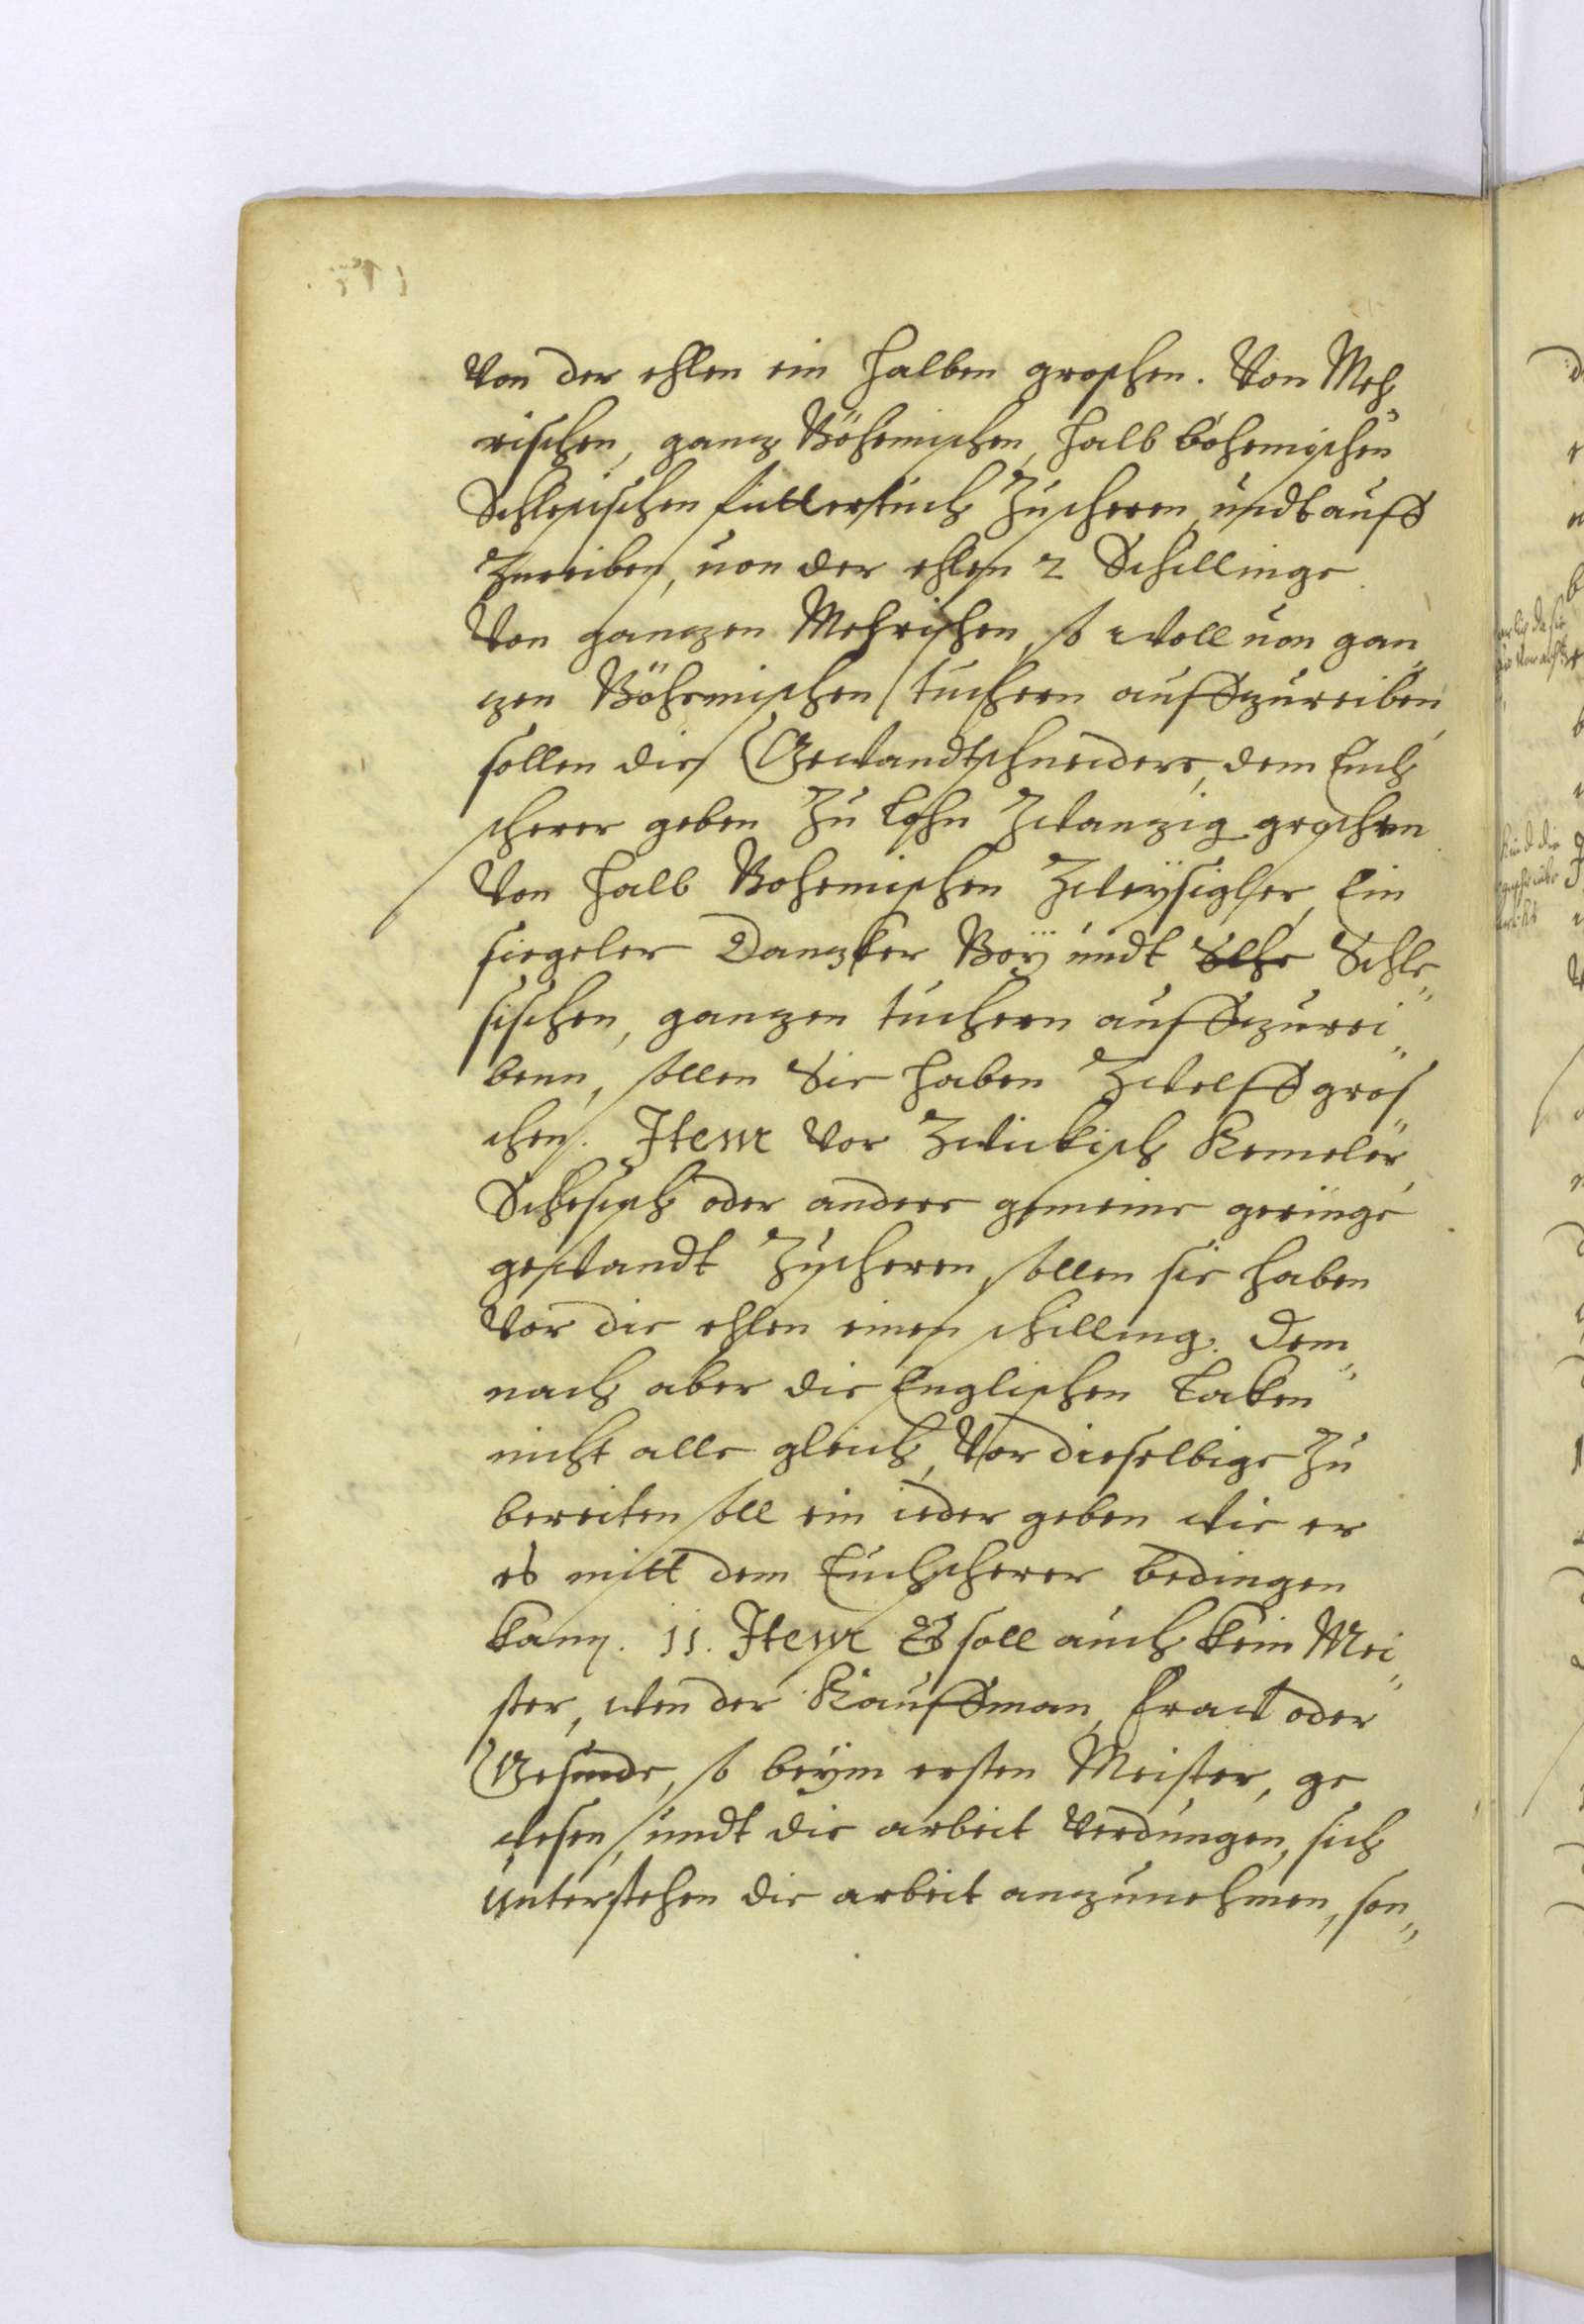 Von der ehlen ein halben groschen. Von Meh
rischen, gancz Böhemischen, halb böhemischen
Schlesischen futtertuch Zuscheren, undt auff
Zureiben, uon der ehlen 2 Schillinge
Von ganczen Mehrischen, so woll uon gan„
czen Böhemischen tuchern auffzureiben,
sollen die Gewandtschneidere, dem Tuch
scherer geben Zu Lohn Zwanzig groschen
Von halb Bohemischen Zweÿsigler, Ein
siegeler Danzker Boÿ undt Sche Schle„
sischen, ganzen tuchern auffzurei„
benn, sollen Sie haben Zwelff gros„
chen. Item Vor Zwickisch Kemeler,
Schlesisch oder andere gemeine geringe
gewandt Zuscheren, sollen sie haben
Vor die ehlen einen schilling. Dem„
nach aber die Englischen Laken
nicht alle gleich, Vor dieselbige Zu
bereiten soll ein ieder geben wie er
es mitt dem Tuchscherer bedingen
kann. 11. Item Es soll auch kein Mei„
ster, wen der Kauffman, Fraw oder
Gesinde, so beÿm ersten Meister, ge
wesen, undt die arbeit Verdungen, sich
unterstehen die arbeit anzunehmen, son„